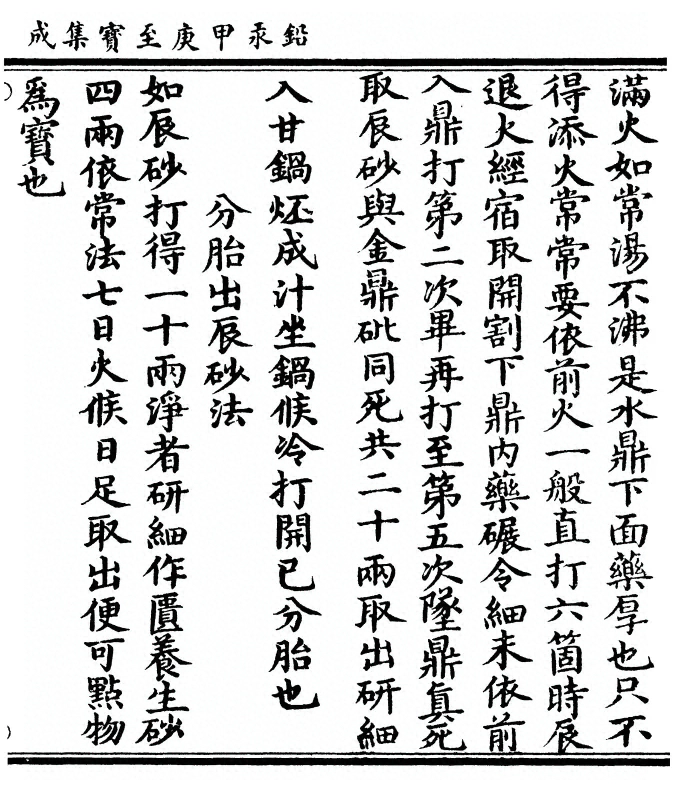 鉛汞甲庚至寶集成
滿火如常湯不沸是水鼎下面藥厚也只不
得添火常常要依前火一般直打六箇時辰
退火經宿取開割下鼎內藥碾令細末依前
入鼎打第二次畢再打至第五次墜鼎真死
取辰砂與金鼎砒同死共二十兩取出研細
入甘鍋炼成汁坐鍋候冷打開已分胎也
分胎出辰砂法
如辰砂打得一十兩淨者研細作匱養生砂
四兩依常法七日火候日足取出便可點物
為寶也